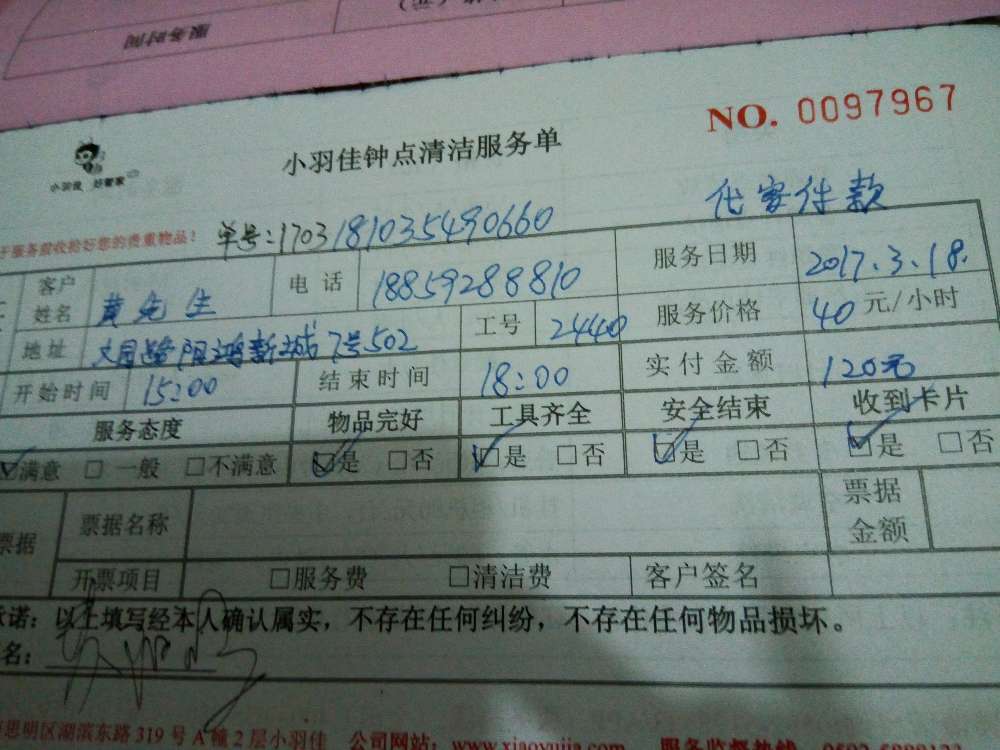 服务时间
NO. 0097967
小羽佳 好管家
小羽佳钟点清洁服务单
代客付款
服务前收拾好您的贵重物品！
单号:1703181035490660
客户姓名 黄先生 电话 18859288810 服务日期 2017.3.18.
地址 阳鸿新城7号502 工号 24440 服务价格 40元/小时
开始时间 15:00 结束时间 18:00 实付金额 120元
服务态度 物品完好 工具齐全 安全结束 收到卡片
☑满意 □一般 □不满意 ☑是 □否 ☑是 □否 ☑是 □否 ☑是 □否
票据 票据名称 票据金额
开票项目 □服务费 □清洁费 客户签名
承诺：以上填写经本人确认属实，不存在任何纠纷，不存在任何物品损坏。
名：
思明区湖滨东路319号A幢2层小羽佳 公司网站：www.xiaoyujia.com 服务监督热线